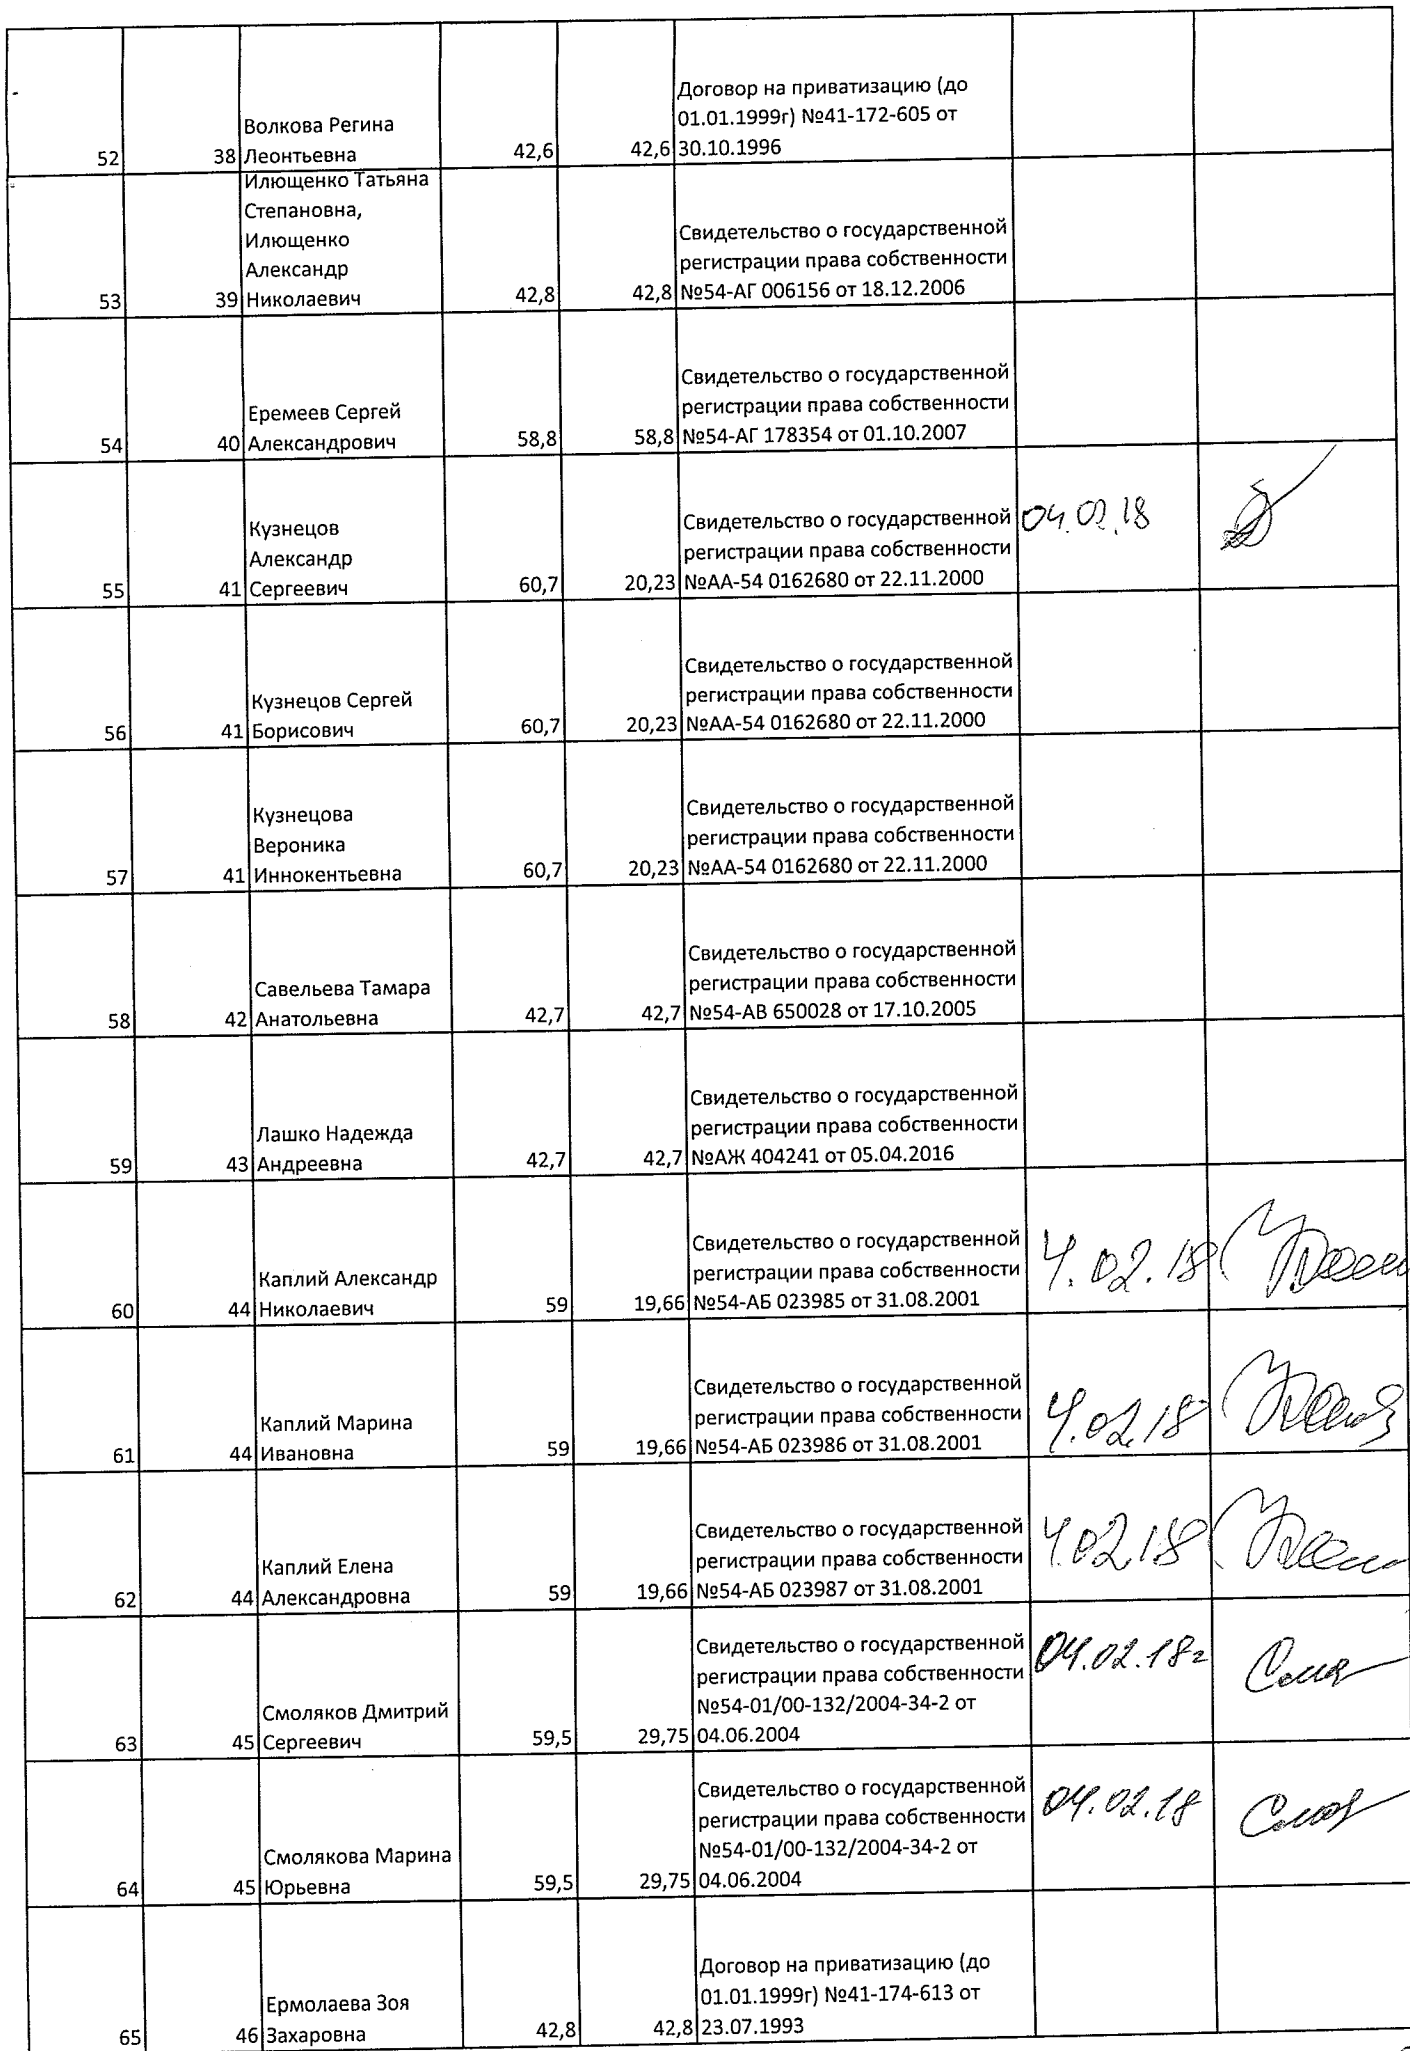 Договор на приватизацию (до
01.01.1999г) №41-172-605 от
52 38 Волкова Регина Леонтьевна 42,6 42,6 30.10.1996
Илющенко Татьяна
Степановна,
Илющенко
Александр
Николаевич
53 39 42,8 42,8
Свидетельство о государственной
регистрации права собственности
№54-АГ 006156 от 18.12.2006
54 40
Еремеев Сергей
Александрович
58,8 58,8
Свидетельство о государственной
регистрации права собственности
№54-АГ 178354 от 01.10.2007
55 41
Кузнецов
Александр
Сергеевич
60,7 20,23
Свидетельство о государственной
регистрации права собственности
№АА-54 0162680 от 22.11.2000
04.02.18
56 41
Кузнецов Сергей
Борисович
60,7 20,23
Свидетельство о государственной
регистрации права собственности
№АА-54 0162680 от 22.11.2000
57 41
Кузнецова
Вероника
Иннокентьевна
60,7 20,23
Свидетельство о государственной
регистрации права собственности
№АА-54 0162680 от 22.11.2000
58 42
Савельева Тамара
Анатольевна
42,7 42,7
Свидетельство о государственной
регистрации права собственности
№54-АВ 650028 от 17.10.2005
59 43
Лашко Надежда
Андреевна
42,7 42,7
Свидетельство о государственной
регистрации права собственности
№АЖ 404241 от 05.04.2016
60 44
Каплий Александр
Николаевич
59 19,66
Свидетельство о государственной
регистрации права собственности
№54-АБ 023985 от 31.08.2001
4.02.18
61 44
Каплий Марина
Ивановна
59 19,66
Свидетельство о государственной
регистрации права собственности
№54-АБ 023986 от 31.08.2001
4.02.18
62 44
Каплий Елена
Александровна
59 19,66
Свидетельство о государственной
регистрации права собственности
№54-АБ 023987 от 31.08.2001
4.02.18
63 45
Смоляков Дмитрий
Сергеевич
59,5 29,75
Свидетельство о государственной
регистрации права собственности
№54-01/00-132/2004-34-2 от
04.06.2004
04.02.18г
64 45
Смолякова Марина
Юрьевна
59,5 29,75
Свидетельство о государственной
регистрации права собственности
№54-01/00-132/2004-34-2 от
04.06.2004
04.02.18
65 46
Ермолаева Зоя
Захаровна
42,8 42,8
Договор на приватизацию (до
01.01.1999г) №41-174-613 от
23.07.1993